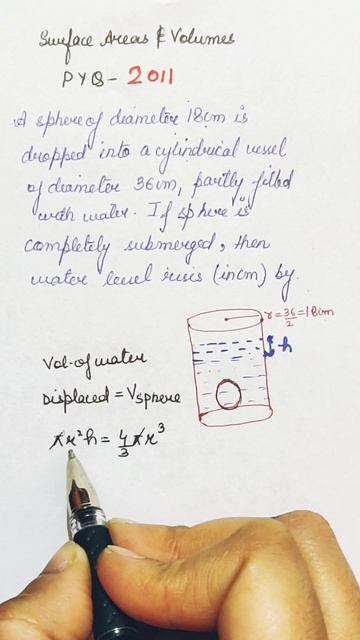 Surface Areas & Volumes
PYQ - 2011
A sphere of diameter 18cm is
dropped into a cylindrical vessel
of diameter 36cm, partly filled
with water. If sphere is
completely submerged, then
water level rises (in cm) by.
r = 36/2 = 18cm
h
Vol. of water
Displaced = Vsphere
πr²h = 4/3 πr³